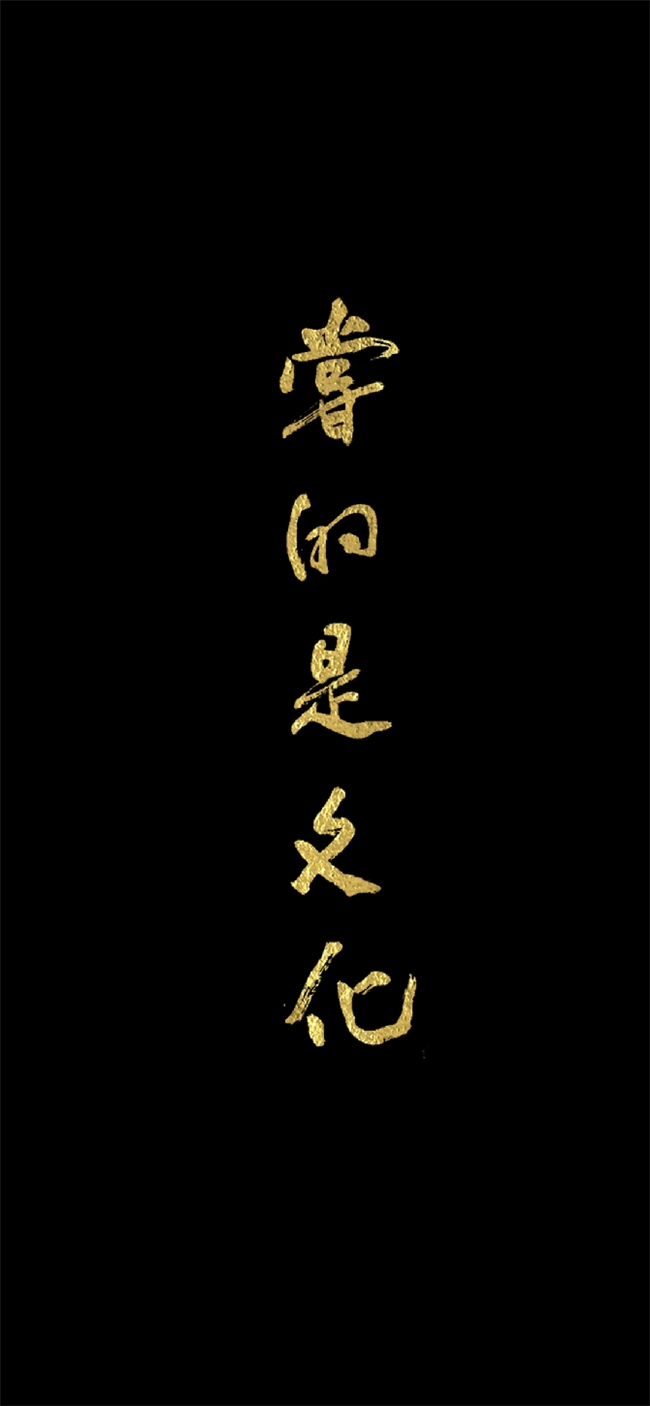 嘗的是文化